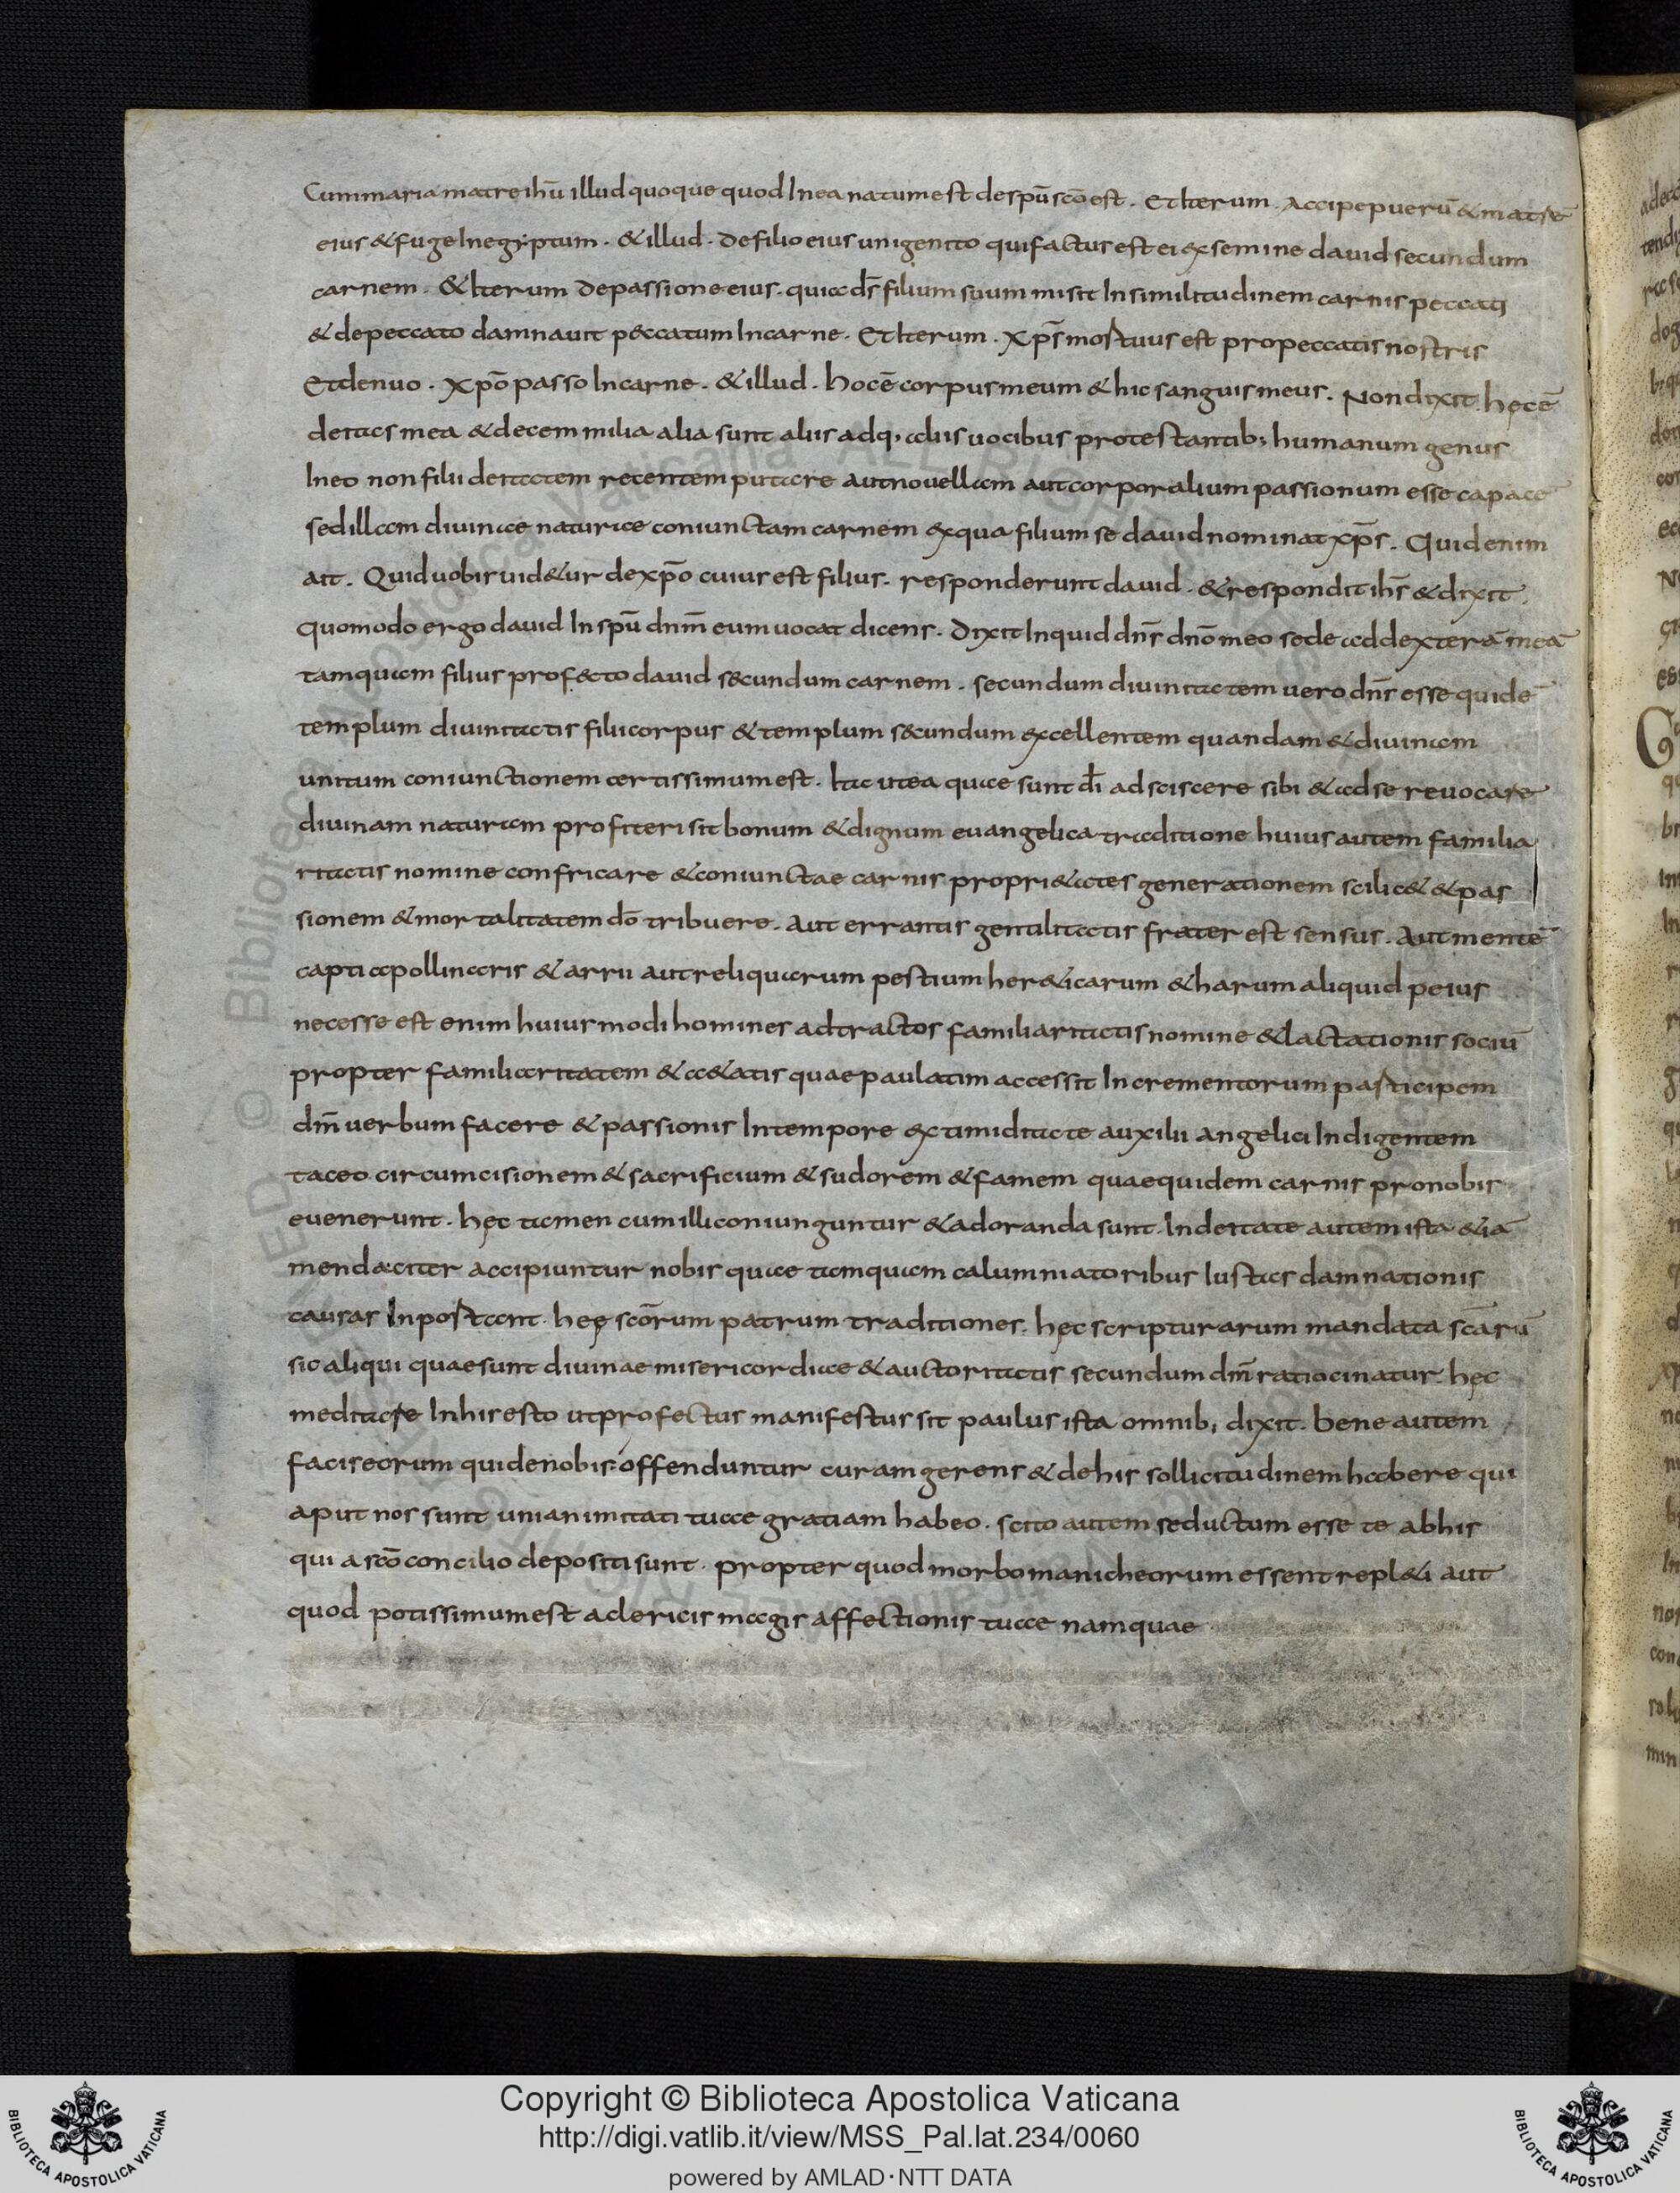 Cum maria matre ihū illud quoque quod In ea natum est de spū scō est . Et Iterum . Accipe puerū & matrē
eius & fuge In egyptum . & illud . De filio eius unigenito qui factus est ei ex semine dauid secundum
carnem . & Iterum De passione eius . quia ds̄ filium suum misit In similitudinem carnis peccati
& de peccato damnauit peccatum In carne . Et Iterum . Xp̄s mortuus est pro peccatis nostris
Et denuo . Xpō passo In carne . & illud . hoc ē corpus meum & hic sanguis meus . Non dixit hęc ē
deitas mea & decem milia alia sunt aliis adq; aliis uocibus protestantib; humanum genus
In eo non filii deitatem recentem putare aut nouellam aut corporalium passionum esse capacē
sed illam diuinae naturae coniunctam carnem ex qua filium se dauid nominat xp̄s . Quid enim
ait . Quid uobis uid&ur de xpō cuius est filius . responderunt dauid . & respondit ihs̄ & dixit .
quomodo ergo dauid In spū dnm̄ eum uocat dicens . Dixit Inquid dns̄ dnō meo sede ad dexterā meā
tamquam filius profecto dauid s&cundum carnem . secundum diuinitatem uero dns̄ esse quidē
templum diuinitatis filii corpus & templum s&cundum excellentem quandam & diuinam
unitum coniunctionem certissimum est . Ita ut ea quae sunt dī adsciscere sibi & ad se reuocare
diuinam naturam profiteri sit bonum & dignum euangelica traditione huius autem familia
ritatis nomine confricare & coniunctae carnis propri&ates generationem scilic& & pas
sionem & mortalitatem dō tribuere . Aut errantis gentilitatis frater est sensus . Aut mentē
capti apollinaris & arrii aut reliquarum pestium her&icarum & harum aliquid peius
necesse est enim huiusmodi homines adtractos familiaritatis nomine & lactationis sociū
propter familiaritatem & a&atis quae paulatim accessit Incrementorum participem
dm̄ uerbum facere & passionis In tempore ex timiditate auxilii angelici Indigentem
taceo circumcisionem & sacrificium & sudorem & famem quae quidem carnis pro nobis
euenerunt . hęc tamen cum illi coniunguntur & adoranda sunt . In deitate autem ista &iā
mendaciter accipiuntur nobis quae tamquam calumniatoribus Iustas damnationis
causas Inportant . hęę scōrum patrum traditiones . hęc scripturarum mandata scārū
sic aliqui quae sunt diuinae misericordiae & auctoritatis secundum dm̄ ratiocinatur . hęc
meditare In his esto ut profectus manifestus sit paulus ista omnib; dixit . bene autem
facis eorum qui de nobis offenduntur curam gerens & de his sollicitudinem habere qui
aput nos sunt unianimitati tuae gratiam habeo . scito autem seductum esse te ab his
qui a scō concilio depositi sunt . propter quod morbo manicheorum essent repl&i aut
quod potissimum est a clericis magis affectionis tuae namquae
Copyright © Biblioteca Apostolica Vaticana
http://digi.vatlib.it/view/MSS_Pal.lat.234/0060
powered by AMLAD·NTT DATA
BIBLIOTECA APOSTOLICA VATICANA
BIBLIOTECA APOSTOLICA VATICANA